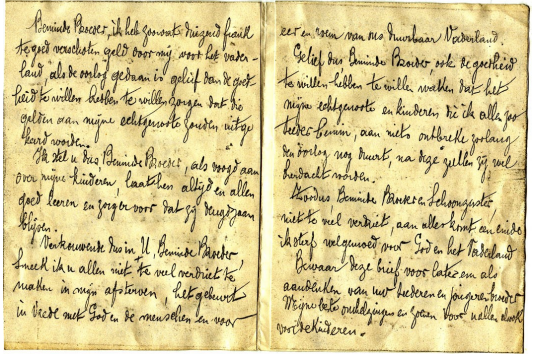 Beminde Broeder, ik heb zoowat duizend frank
te goed verschoten geld voor mij, voor het vader-
land, als de oorlog gedaan is gelief dan de goed-
heid te willen hebben te willen zorgen dat die
gelden aan mijne echtgenote zouden uitge
keerd worden.
Ik stel u dus, Beminde Broeder, als voogd aan
over mijne kinderen, laat hen altijd en allen
goed leeren en zorg er voor dat zij deugdzaam
blijven.
Vertrouwende dus in U, Beminde Broeder,
smeek ik u allen niet te veel verdriet te
maken in mijn afsterven, het gebeurt
in vrede met God en de menschen en voor
eer en roem van ons duurbaar Vaderland.
Gelief dus Beminde Broeder, ook de goedheid
te willen hebben te willen waken dat het
mijne echtgenote en kinderen die ik alles zoo
teeder bemin, aan niets ontbreke zoolang
den oorlog nog duurt, na deze zullen zij wel
herdacht worden.
Beminde Broeder en Schoonzuster,
niet te veel verdriet, aan alles komt een einde
ik sterf welgemoed voor God en het Vaderland
Bewaar deze brief voor later en als
aandenken van uw teederen en jongeren broeder
Mijne beste omhelzingen en zoenen voor u allen alsook
voor de kinderen.